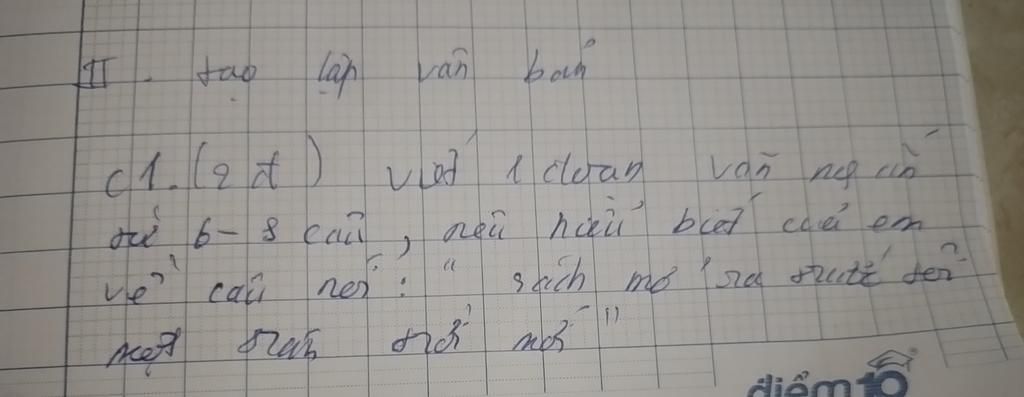 II. tạo lập văn bản
c1. (2 đ) viết 1 đoạn văn ngắn
từ 6-8 câu, nêu hiểu biết của em
về câu nói: "sách mở ra trước tôi
một chân trời mới"
điểm 10